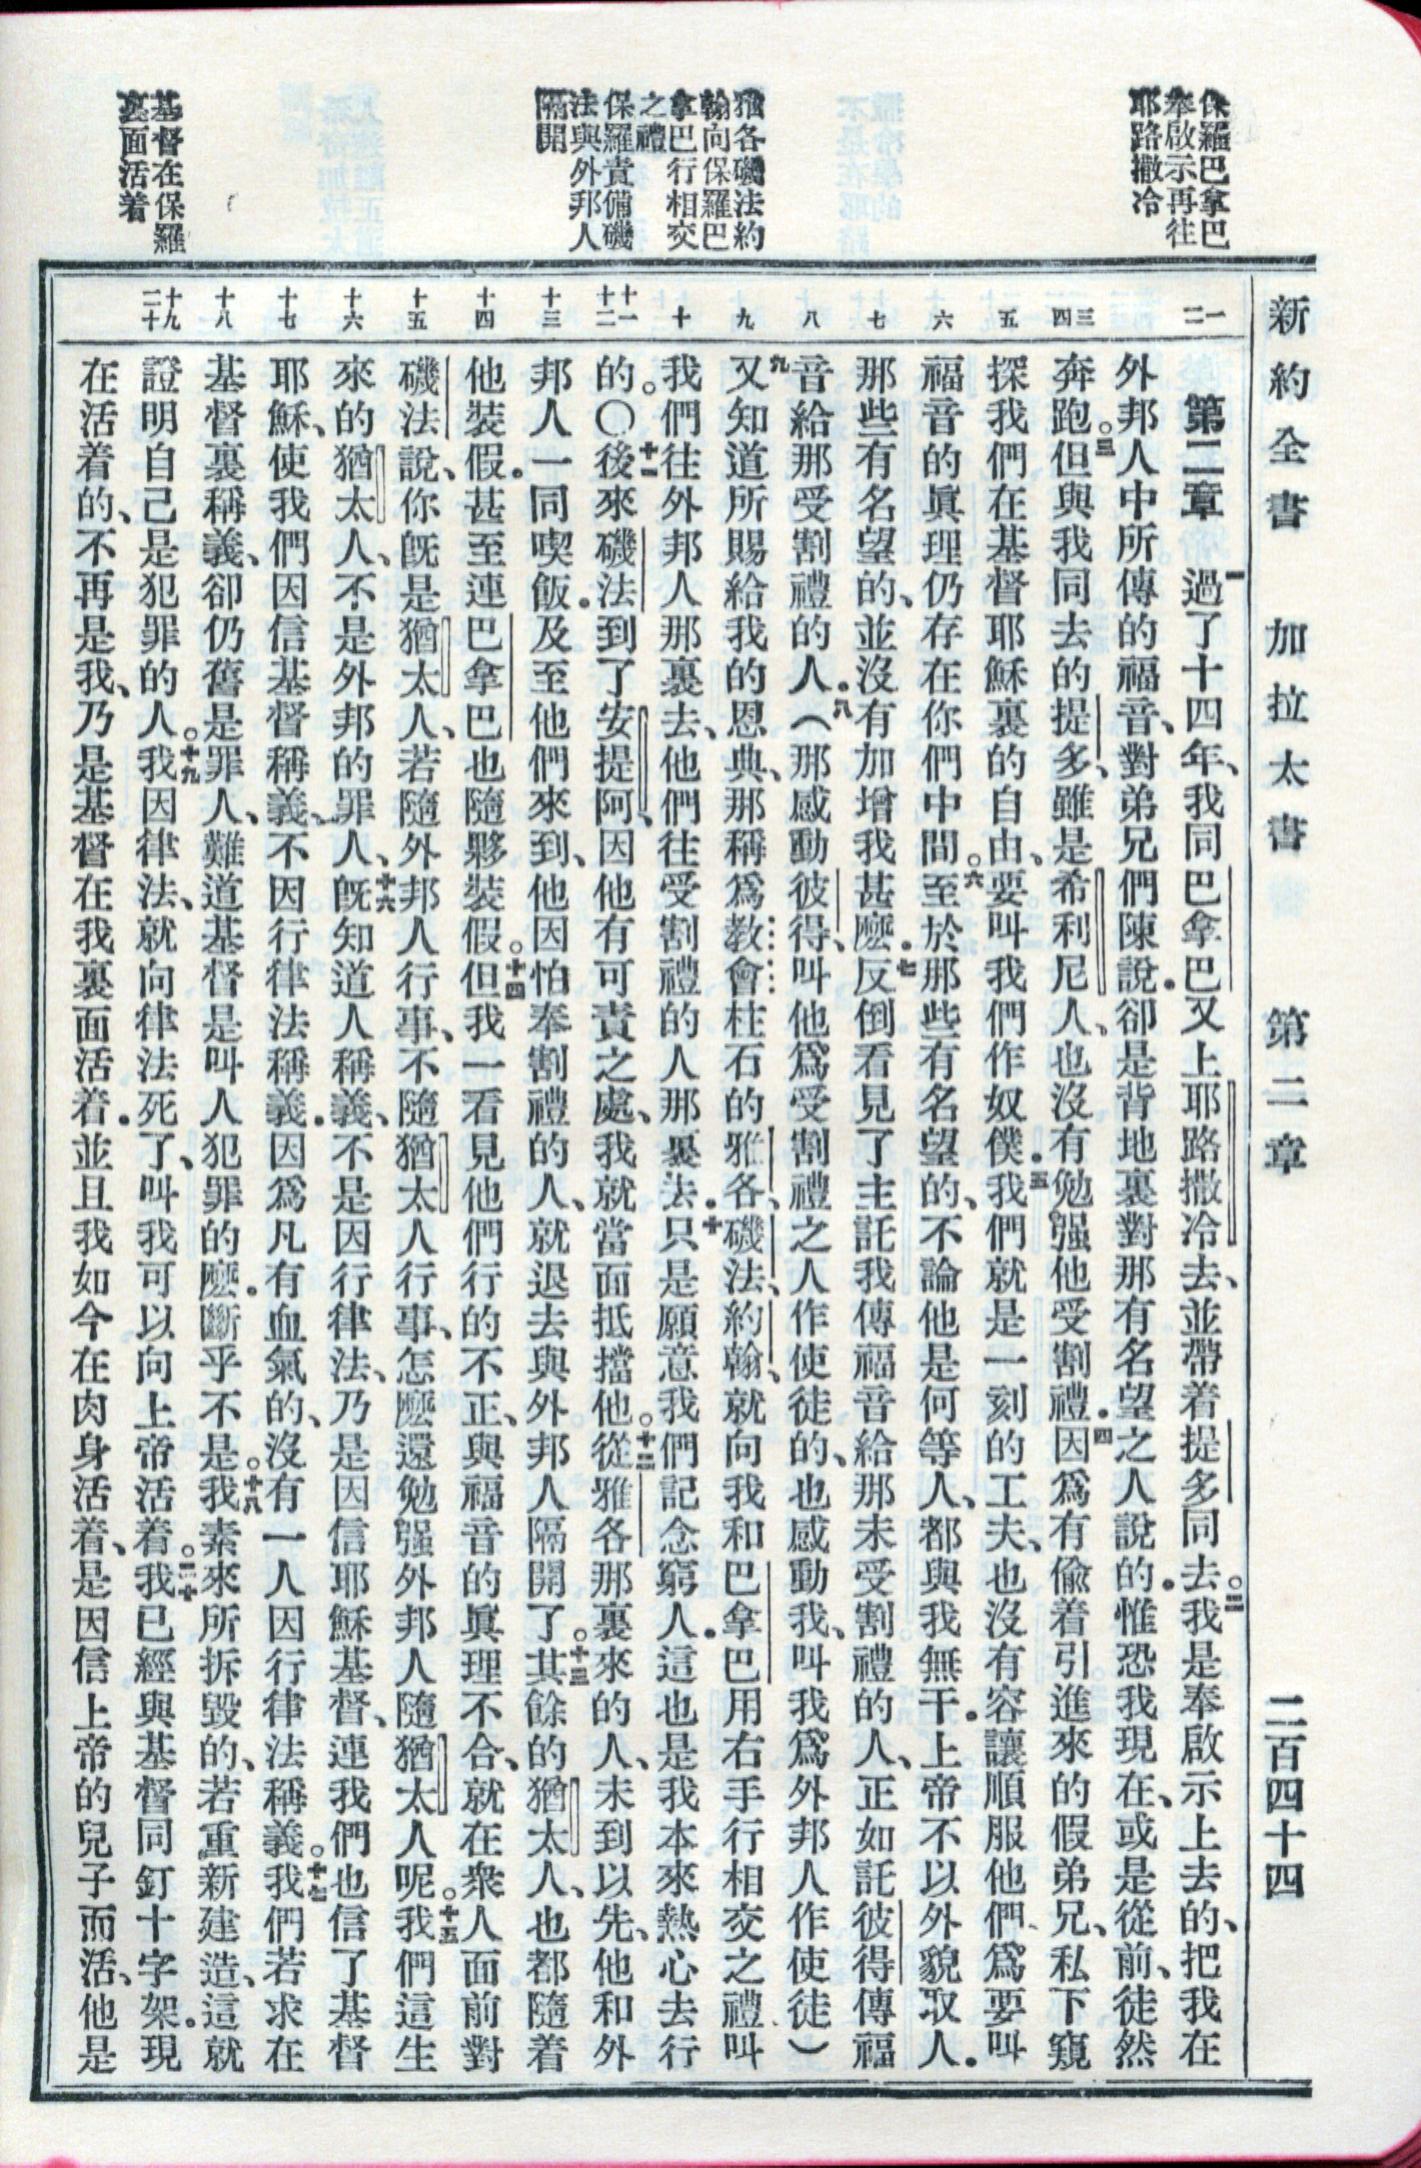 新約全書 加拉太書 第二章 二百四十四
保羅巴拿巴
奉啟示再往
耶路撒冷
雅各磯法約
翰向保羅巴
拿巴行相交
之禮
保羅責備磯
法與外邦人
隔開
基督在保羅
裏面活着
一
二
三
四
五
六
七
八
九
十
十一
十二
十三
十四
十五
十六
十七
十八
十九
二十
第二章 一過了十四年、我同巴拿巴又上耶路撒冷去、並帶着提多同去。二我是奉啟示上去的、把我在
外邦人中所傳的福音、對弟兄們陳說．卻是背地裏對那有名望之人說的．惟恐我現在、或是從前、徒然
奔跑。三但與我同去的提多、雖是希利尼人、也沒有勉强他受割禮．四因為有偷着引進來的假弟兄、私下窺
探我們在基督耶穌裏的自由、要叫我們作奴僕．五我們就是一刻的工夫、也沒有容讓順服他們、爲要叫
福音的眞理仍存在你們中間。六至於那些有名望的、不論他是何等人、都與我無干．上帝不以外貌取人．
那些有名望的、並沒有加增我甚麼．七反倒看見了主託我傳福音給那未受割禮的人、正如託彼得傳福
音給那受割禮的人．八（那感動彼得、叫他爲受割禮之人作使徒的、也感動我、叫我爲外邦人作使徒）
九又知道所賜給我的恩典、那稱爲教會柱石的雅各、磯法、約翰、就向我和巴拿巴用右手行相交之禮、叫
我們往外邦人那裏去、他們往受割禮的人那裏去．十只是願意我們記念窮人．這也是我本來熱心去行
的。〇十一後來磯法到了安提阿、因他有可責之處、我就當面抵擋他。十二從雅各那裏來的人、未到以先、他和外
邦人一同喫飯．及至他們來到、他因怕奉割禮的人、就退去與外邦人隔開了。十三其餘的猶太人、也都隨着
他裝假．甚至連巴拿巴也隨夥裝假。十四但我一看見他們行的不正、與福音的眞理不合、就在衆人面前對
磯法說、你旣是猶太人、若隨外邦人行事、不隨猶太人行事、怎麼還勉强外邦人隨猶太人呢。十五我們這生
來的猶太人、不是外邦的罪人、十六旣知道人稱義、不是因行律法、乃是因信耶穌基督、連我們也信了基督
耶穌、使我們因信基督稱義、不因行律法稱義．因爲凡有血氣的、沒有一人因行律法稱義。十七我們若求在
基督裏稱義、卻仍舊是罪人、難道基督是叫人犯罪的麼．斷乎不是。十八我素來所拆毀的、若重新建造、這就
證明自己是犯罪的人。十九我因律法、就向律法死了、叫我可以向上帝活着。二十我已經與基督同釘十字架．現
在活着的、不再是我、乃是基督在我裏面活着．並且我如今在肉身活着、是因信上帝的兒子而活、他是